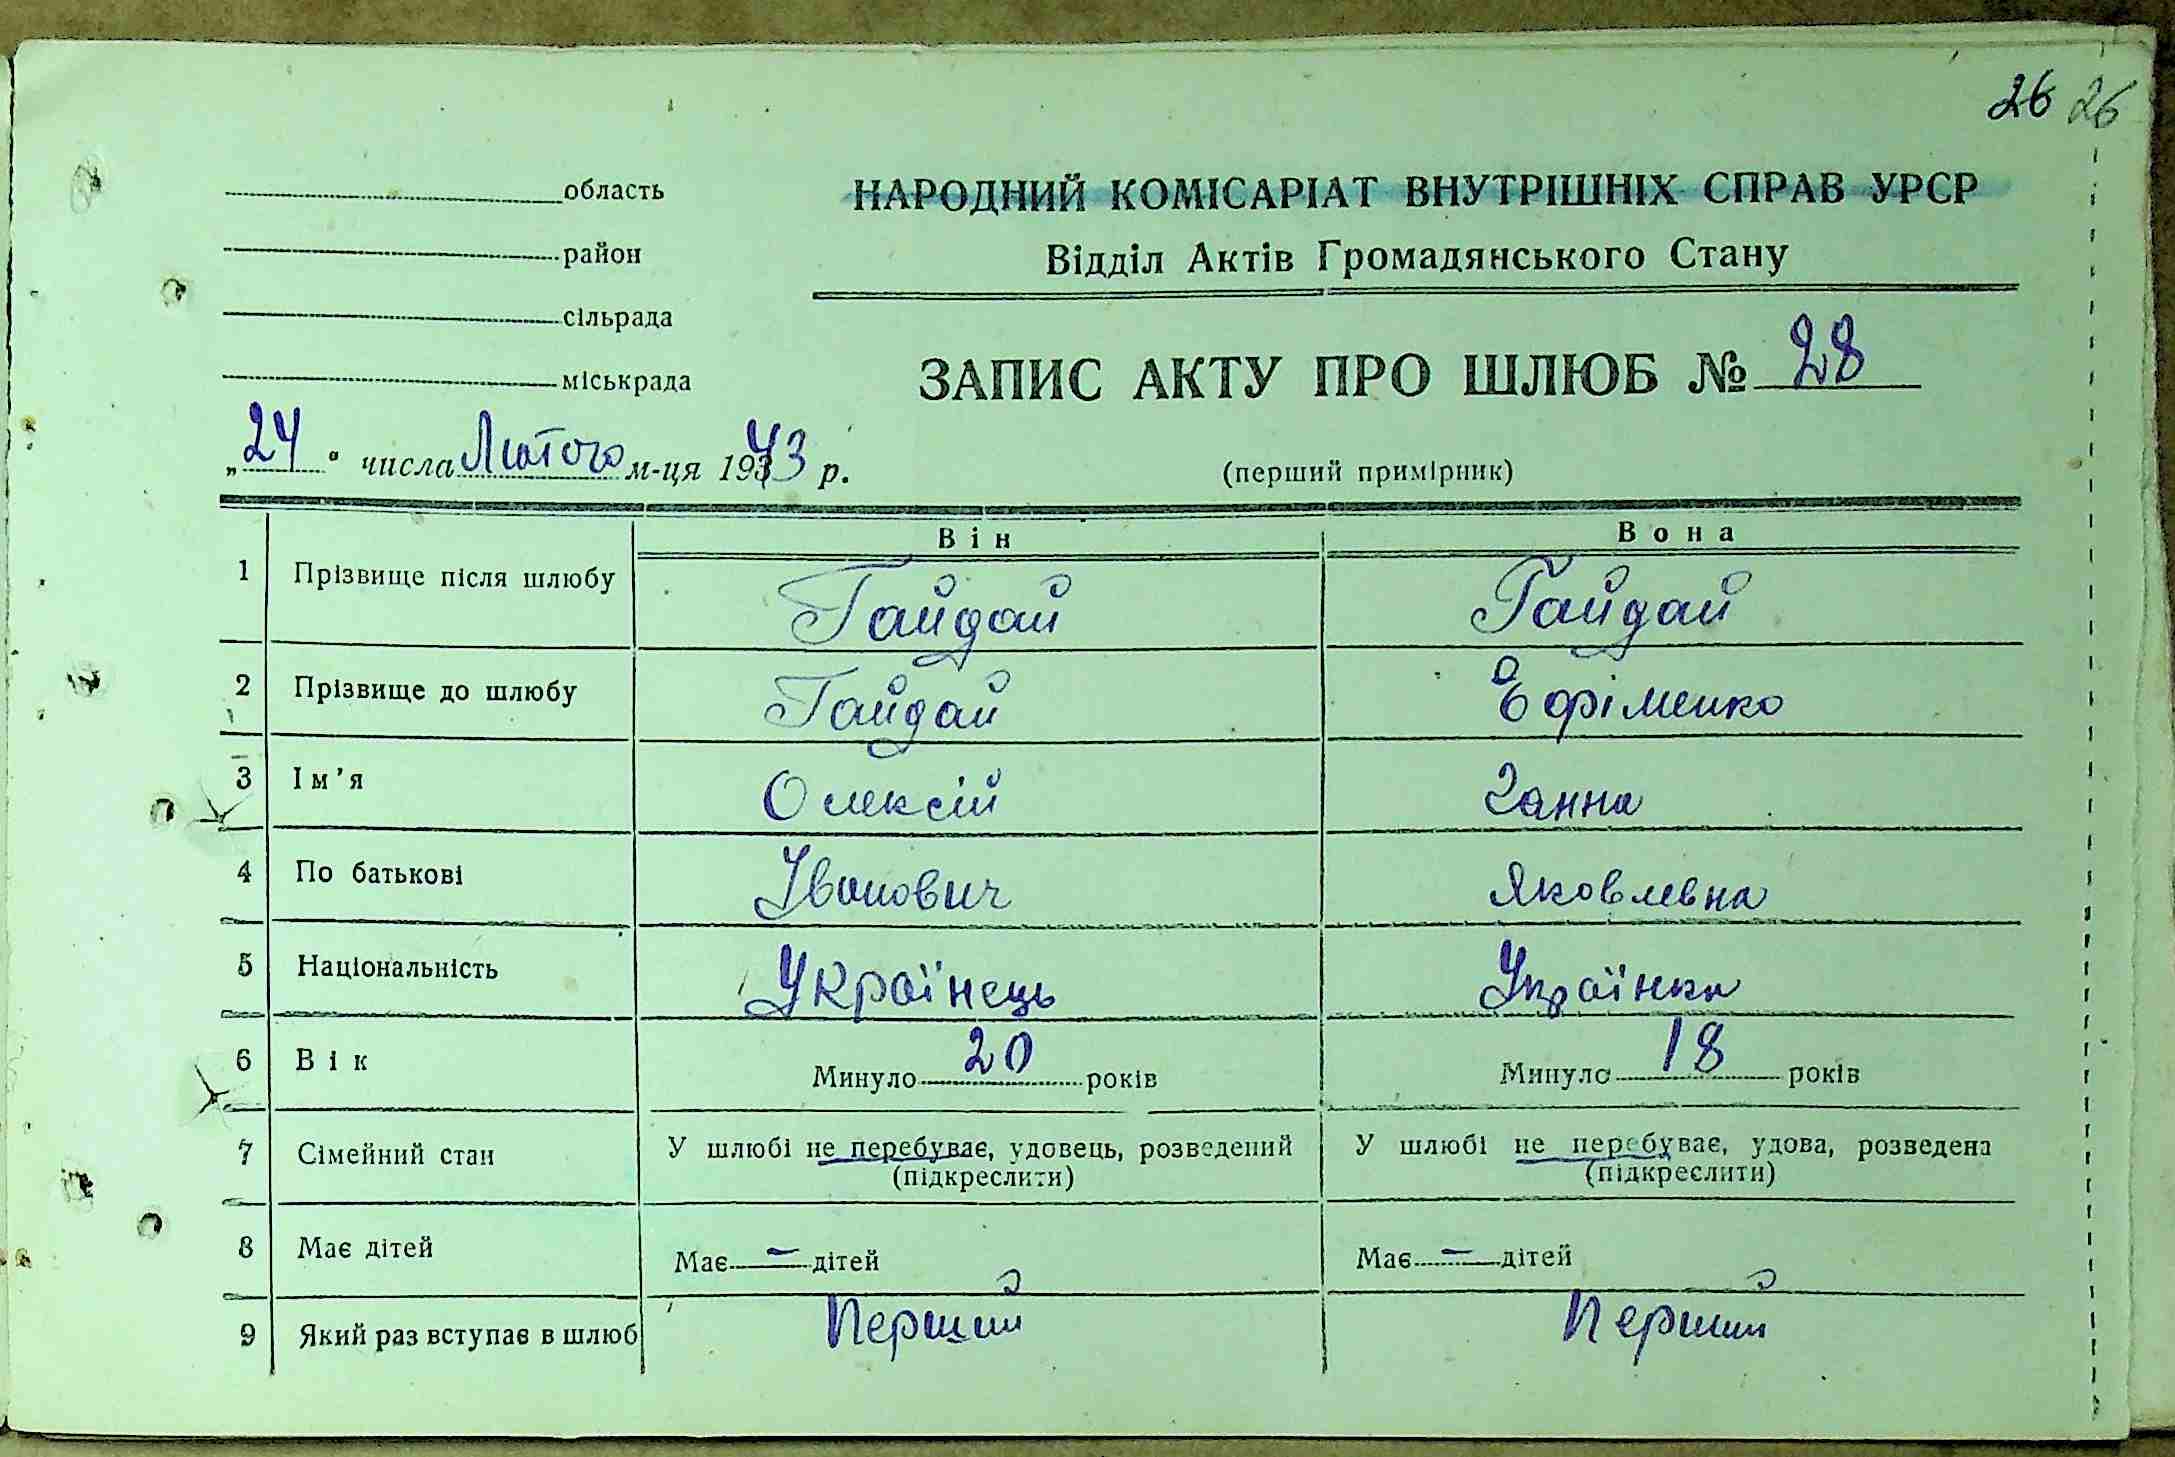 26 26
область
район
сільрада
міськрада
НАРОДНИЙ КОМІСАРІАТ ВНУТРІШНІХ СПРАВ УРСР
Відділ Актів Громадянського Стану
ЗАПИС АКТУ ПРО ШЛЮБ № 28
„24“ числа Лютого м-ця 1943 р.
(перший примірник)
Він Вона
1 Прізвище після шлюбу Гайдай Гайдай
2 Прізвище до шлюбу Гайдай Єфіменко
3 Ім’я Олексій Ганна
4 По батькові Іванович Яковлевна
5 Національність Українець Українка
6 Вік Минуло 20 років Минуло 18 років
7 Сімейний стан У шлюбі не перебуває, удовець, розведений У шлюбі не перебуває, удова, розведена
(підкреслити) (підкреслити)
8 Має дітей Має – дітей Має – дітей
9 Який раз вступає в шлюб Перший Перший